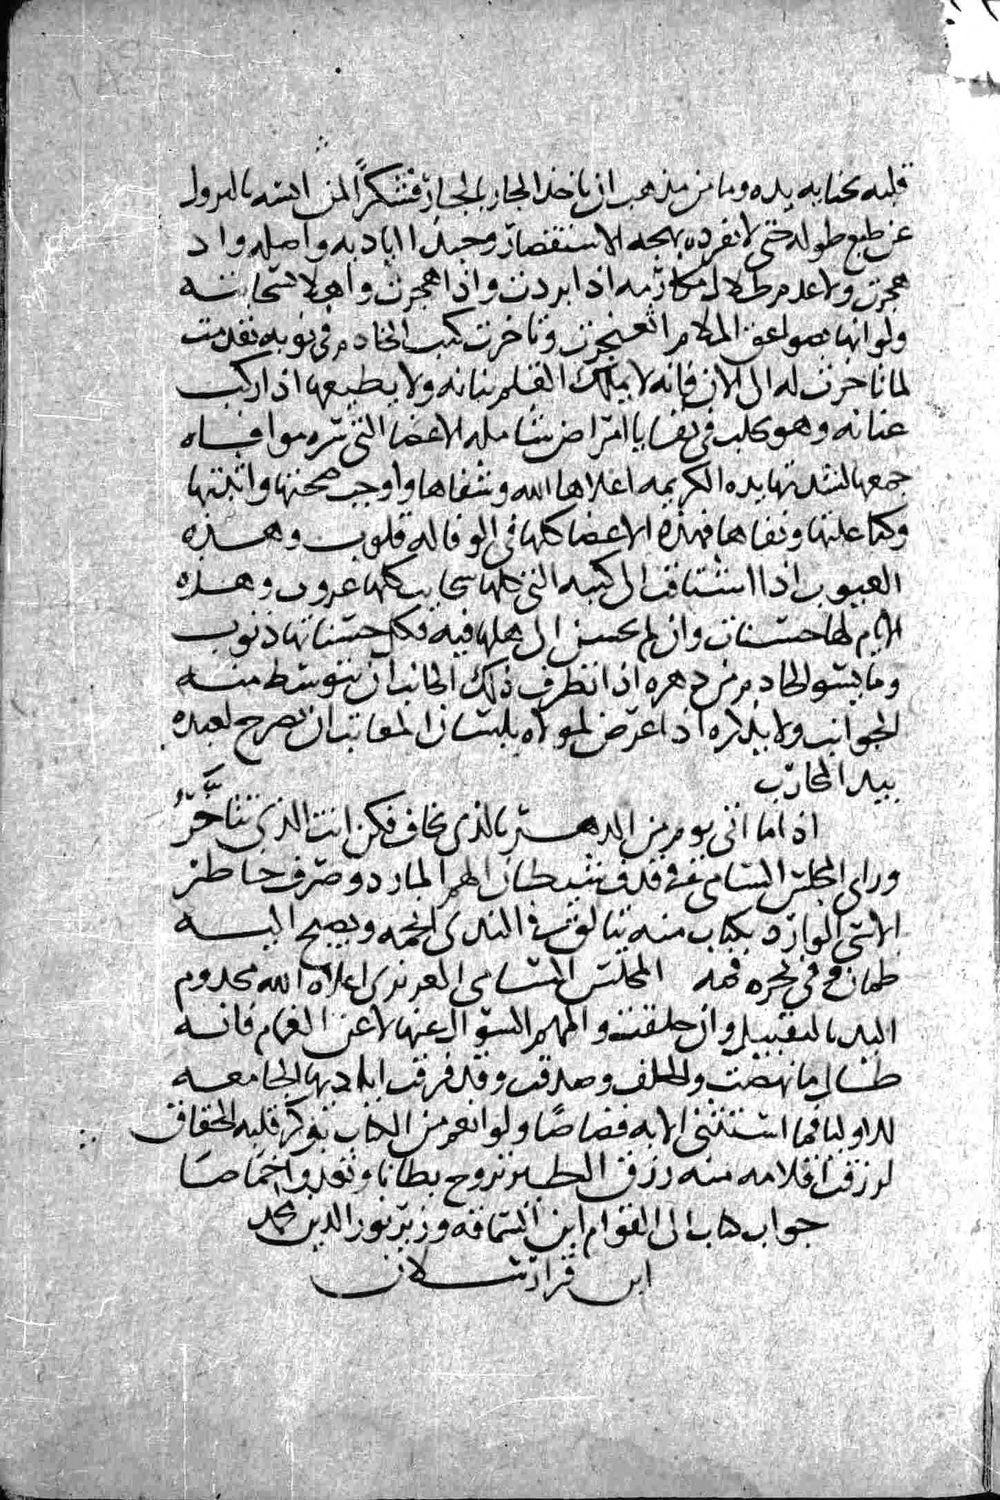 قلبه بجنايه يده وما من مذهب ان ياخذ الجار بالجار فشكرا لمن استه بالعدول
عن طبع طوله حتى لا نفرده بهجه الاستقصار وحبذا اياديه واصله واذ
هجرت ولا عدم ظلال مكارمه اذا بردت واذا هجرت واهلا بسحابته
ولو انها بصواعق الملام انفجرت وتاخرت كتب الخادم فى نوبه تقدمت
لما تاخرت له الى الان فانه لا يملك القلم بنانه ولا يطيعها اذا ركب
عنانه وهو يكتب فى بقايا امراض شامله الاعضا التى تره موافاه
جمعها لتشدتها يده الكريمه اعلاها الله وشفاها واوجب صحتها واثبتها
وكفا علتها ونفاها فهذه الاعضا كلها فى الوفا له قلوب وهذه
العيوب اذا اشتاقت الى كتبه التى كلها سحايب كلها غروب وهذه
الايام لها حسنات وان لم يحسن الى اهلها فيه فكل حسناتها ذنوب
وما يسو الخادم من دهره اذا نظرف ذلك الجانب ان تتوسط منه
الجوانب ولا يكره اذا عرض لمولاه بلسان المعاتب ان يصرح لعبده
بيد المحارب
اذا ما اتى يوم من الدهر بالذى تخاف فكن انت الذى تتاخر
وراى المجلس السامى فى قذف شيطان الهم المارد وصرف خاطر
الاسى الوارد بكتاب منه يتالق فى الندى نجمه ويصبح اليه
طماح وفى بحره فهمه المجلس السامى العزيزى اعلاه الله مخدوم
اليد بالتقبيل وان حلقت والمهم السوال عنها لا عن الغمام فانه
طالما نهضت والخلف وصدقت وقد فرقت اياديها الجامعه
للاوليا فما استثنى الابه فضاضا ولو انعم من الكتاب بوكر قلبه الخفاق
لرزقت اقلامه منه رزق الطير تروح بطانا وتغدوا خماصا
جواب كتاب الى القوام ابن السماقه وزير نور الدين محمد
ابن قرا ارسلان